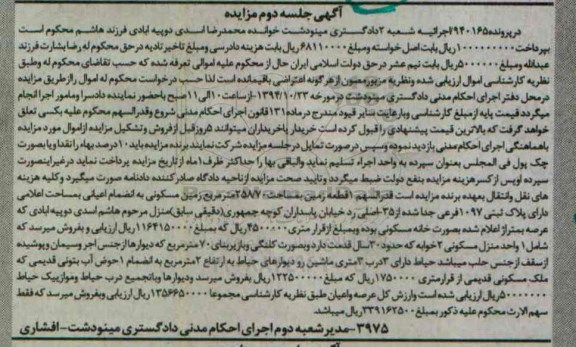 آگهی جلسه دوم مزایده
درپرونده ۹۴۰۱۶۵ اجرائیه شعبه ۲ دادگستری مینودشت خوانده محمدرضا اسدی دوپیه ابادی فرزند هاشم محکوم است
بپرداخت ۱۰۰۰۰۰۰۰۰ ریال بابت اصل خواسته ومبلغ ۶۸۱۱۰۰۰ ریال بابت هزینه دادرسی ومبلغ تاخیر تادیه در حق محکوم له رضا بشارت فرزند
عبدالله ومبلغ ۵۰۰۰۰۰۰ ریال بابت نیم عشر در حق دولت اسلامی ایران حال از محکوم علیه اموالی تعرفه شده که حسب تقاضای محکوم له وطبق
نظریه کارشناسی اموال ارزیابی شده ونظریه مزبور مصون از هرگونه اعتراضی باقیمانده است لذا حسب درخواست محکوم له اموال را از طریق مزایده
در محل دفتر اجرای احکام مدنی دادگستری مینودشت درمورخه ۱۳۹۴/۱۰/۲۳-ازساعت ۱۰ الی ۱۱ صبح باحضور نماینده دادسرا ومامور اجرا انجام
میگردد قیمت پایه از مبلغ کارشناسی وبارعایت سایر قیود مندرج درماده ۱۳۱ قانون اجرای احکام مدنی شروع وقدرالسهم محکوم علیه بکسی تعلق
خواهد گرفت که بالاترین قیمت پیشنهادی را قبول کرده است خریدار یاخریداران میتوانند ۵روزقبل ازفروش وتشکیل مزایده ازاموال مورد مزایده
باهماهنگی اجرای احکام مدنی بازدید نموده وسپس درصورت تمایل درجلسه مزایده شرکت نمایند.برنده مزایده باید ۱۰ درصد بهاء را نقدا ویا بصورت
چک پول فی المجلس بعنوان سپرده به واحد اجراء تسلیم نماید والباقی بهارا حداکثر ظرف ۱ماه از تاریخ مزایده پرداخت نماید درغیراینصورت
سپرده اوپس از کسر هزینه مزایده بنفع دولت ضبط میگردد وتایید صحت مزایده ازناحیه دادگاه صادرکننده دادنامه صورت میگیرد و کلیه هزینه
های نقل وانتقال بعهده برنده مزایده است قدرالسهم ۱قطعه زمین بمساحت ۲۵۸۷ مترمربع زمین مسکونی به انضمام اعیانی بمساحت اعلامی
دارای پلاک ثبتی ۱۰۹۷ فرعی جدا شده از ۳۵-اصلی رد خیابان پاسداران کوچه جمهوری(دقیقی سابق)منزل مرحوم هاشم اسدی دوپیه ابادی که
عرصه بمتراژ اعلام شده بصورت خانه مسکونی بوده وبمبلغ از قرار متری ۴۵۰۰۰۰ ریال که بمبلغ ۱۱۶۴۱۵۰۰۰۰ ریال ارزیابی و بفروش میرسد که
شامل ۱ واحد منزل مسکونی ۲خوابه که حدود ۳۰سال قدمت دارد وبصورت کلنگی وبازیربنای ۷۰ مترمربع که دیوارها ازجنس اجر وسیمان وپوشیده
ازسقف ازجنس حلب میباشد حیاط دارای ۳درب ۳متری ماشین رو دیوارهای حیاط به ارتفاع ۲مترمربع به انضمام ۱حوض آب بتونی قدیمی که
ملک مسکونی قدیمی از قرارمتری ۱۷۵۰۰۰۰ ریال که مبلغ ۱۲۲۵۰۰۰۰۰ ریال بفروش میرسد ودیوارها وباتجمیع درب حیاط وموزاییک حیاط
۵۰۰۰۰۰۰۰ ریال ارزیابی شده است وارزش کل عرصه واعیان طبق نظریه کارشناسی مجموعا ۱۳۵۶۶۵۰۰۰۰ ریال ارزیابی وبفروش میرسد که فقط
سهم الارث محکوم علیه ذکور بمبلغ ۳۳۹۱۶۲۵۰۰ ریال میباشد.
۳۹۷۵-مدیرشعبه دوم اجرای احکام مدنی دادگستری مینودشت-افشاری